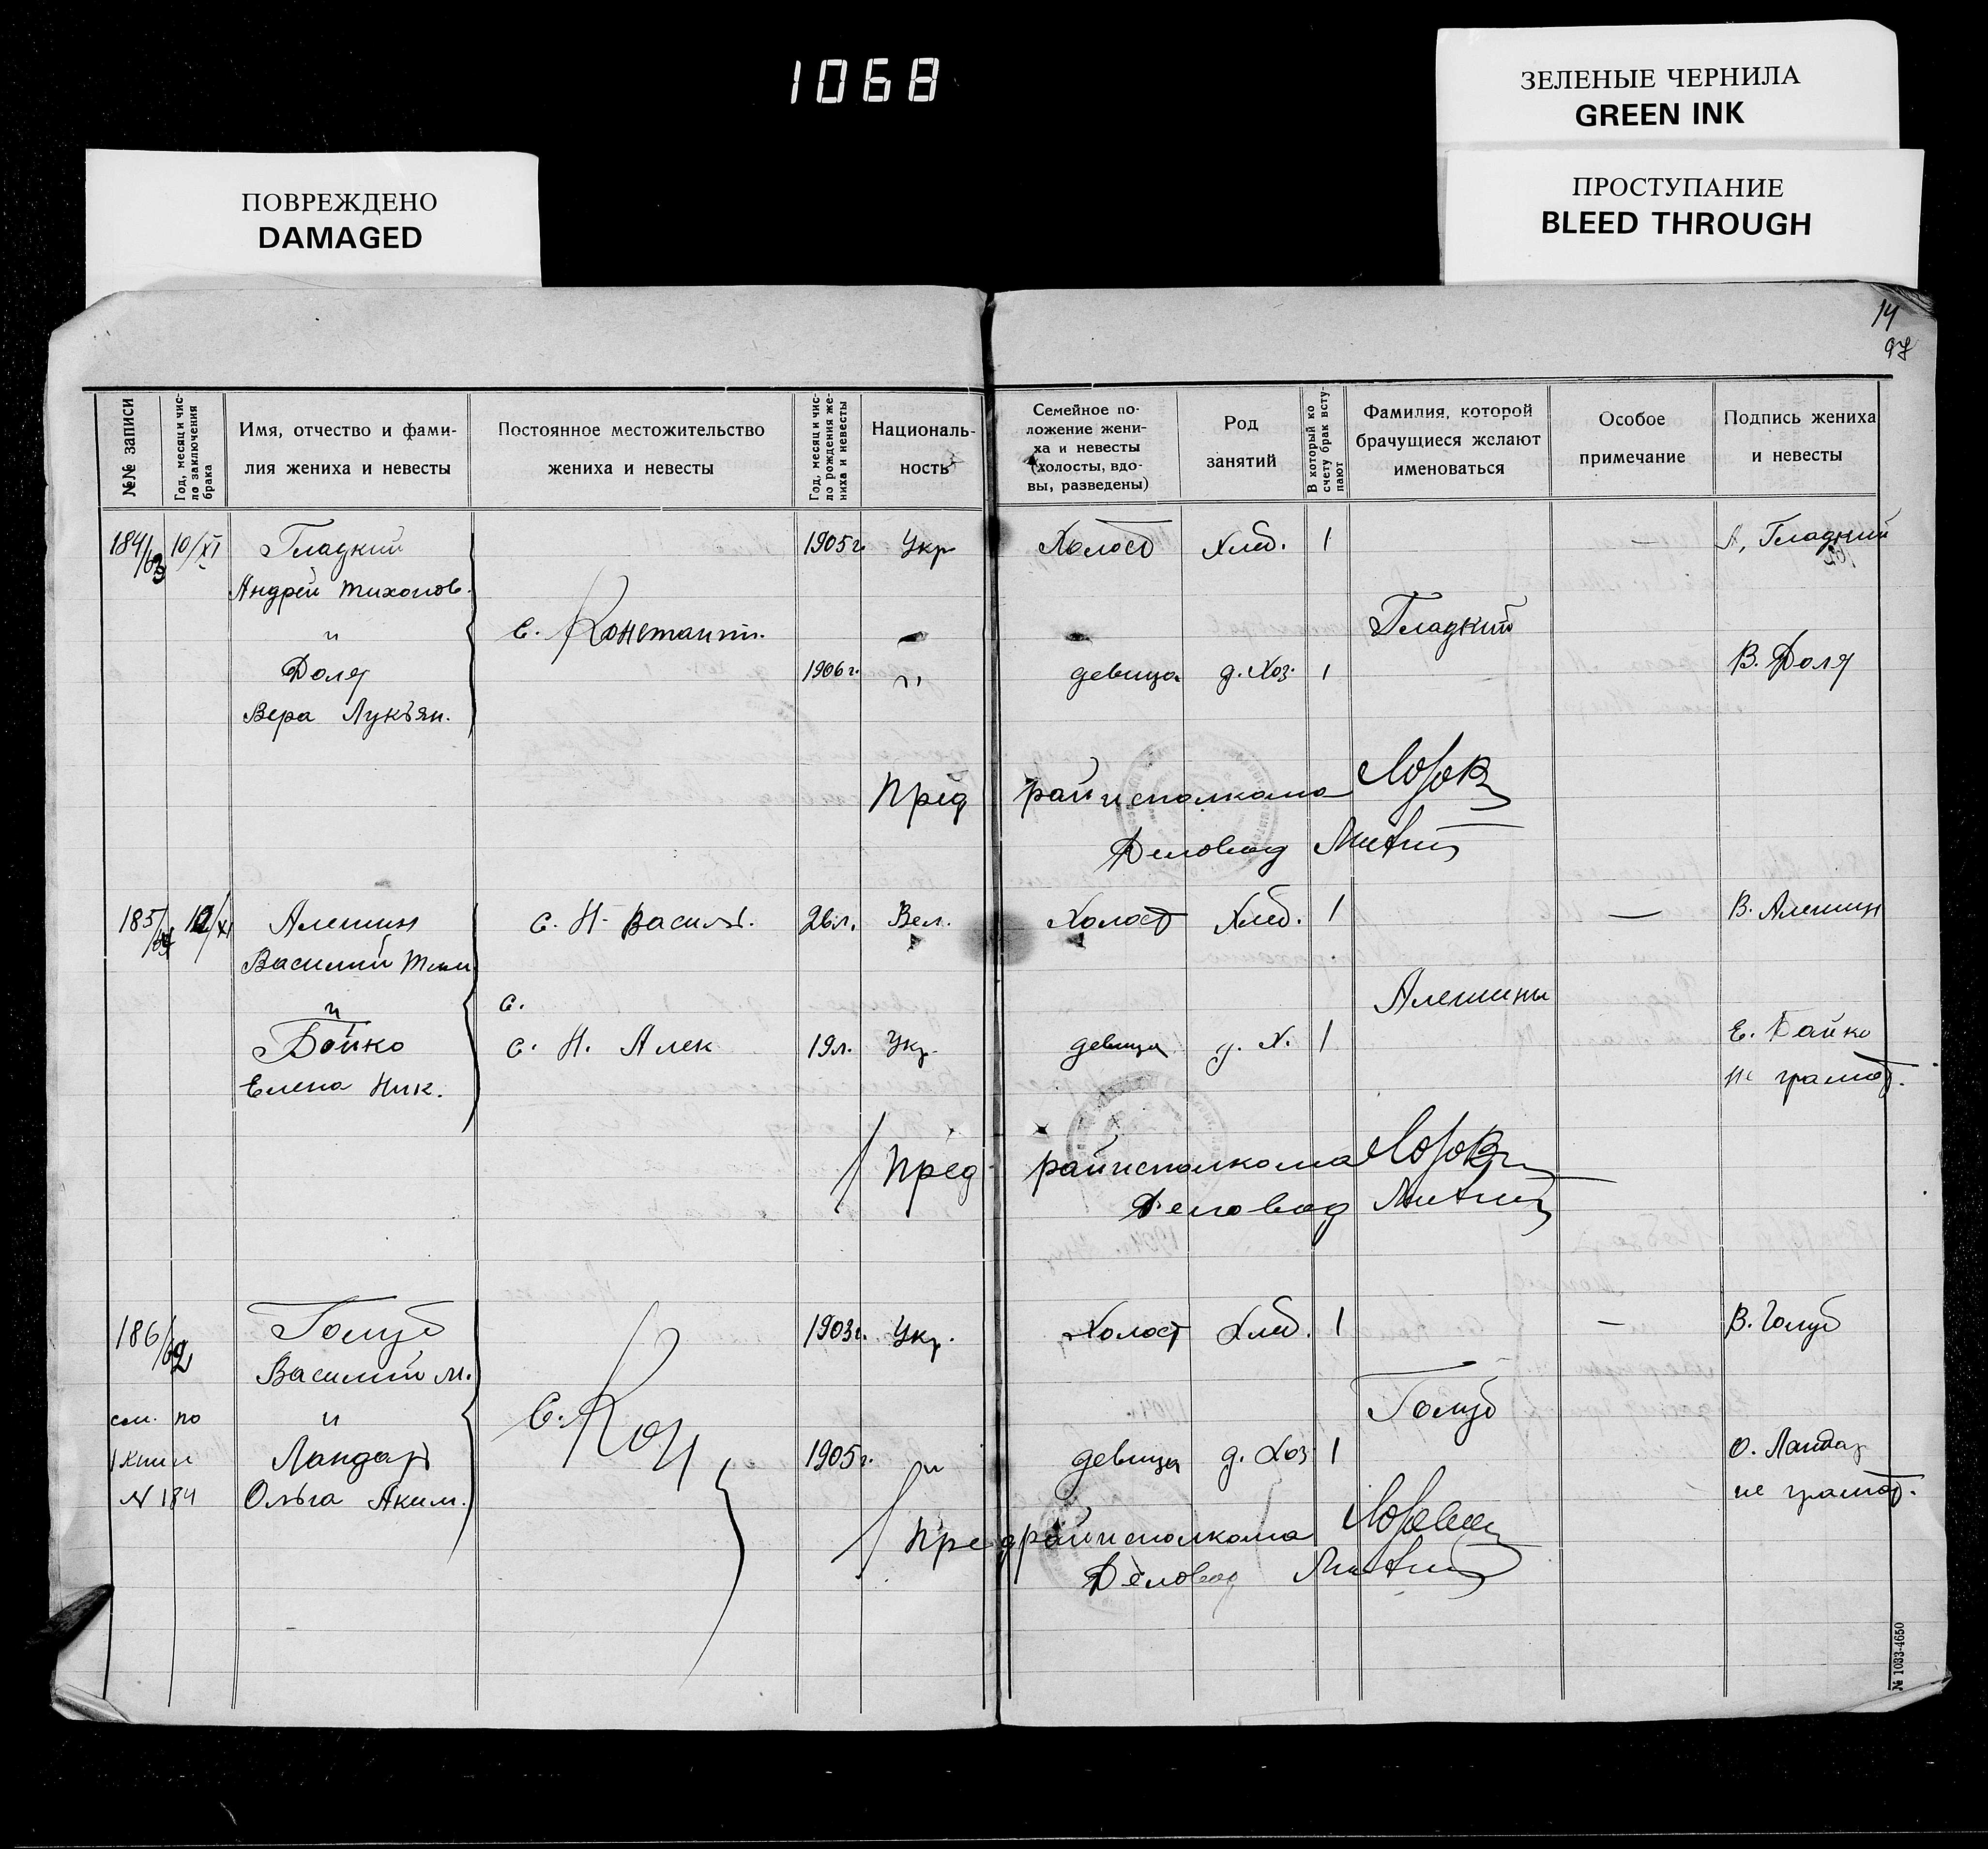 1068
ЗЕЛЕНЫЕ ЧЕРНИЛА
GREEN INK
ПОВРЕЖДЕНО
DAMAGED
ПРОСТУПАНИЕ
BLEED THROUGH
14
97
№№ записи
Год, месяц и чис-
ло заключения
брака
Имя, отчество и фами-
лия жениха и невесты
Постоянное местожительство
жениха и невесты
Год, месяц и чис-
ло рождения же-
ниха и невесты
Националь-
ность
Семейное по-
ложение жени-
ха и невесты
(холосты, вдо-
вы, разведены)
Род
занятий
В который ко
счету брак всту-
пают
Фамилия, которой
брачущиеся желают
именоваться
Особое
примечание
Подпись жениха
и невесты
184/63 10/XI Гладкий 1905г. Укр Холост Хлеб. 1 — А. Гладкий
Андрей Тихонов.
и с. Константин. Гладкий
Доля 1906г. " девица д. Хоз. 1 В. Доля
Вера Лукъян.
Пред райисполкома
Деловод
185/64 12/XI Алешин с. Н- Василь. 26л. Вел. Холост Хлеб. 1 — В. Алешин
Василий Тим
и с. Алешины
Бойко с. Н. Алек 19л. Укр. девица д. Х. 1 Е. Бойко
Елена Ник. не грамот.
Пред райисполкома
Деловод
186/62 Голуб 1903г. Укр. Холост Хлеб. 1 — В. Голуб
Василий М.
см. по и с. Кон Голуб
книги Ландар 1905г. " девица д. Хоз 1 О. Ландар
N 184 Ольга Аким. не грамот.
Пред райисполкома
Деловод
№ 1033-4650